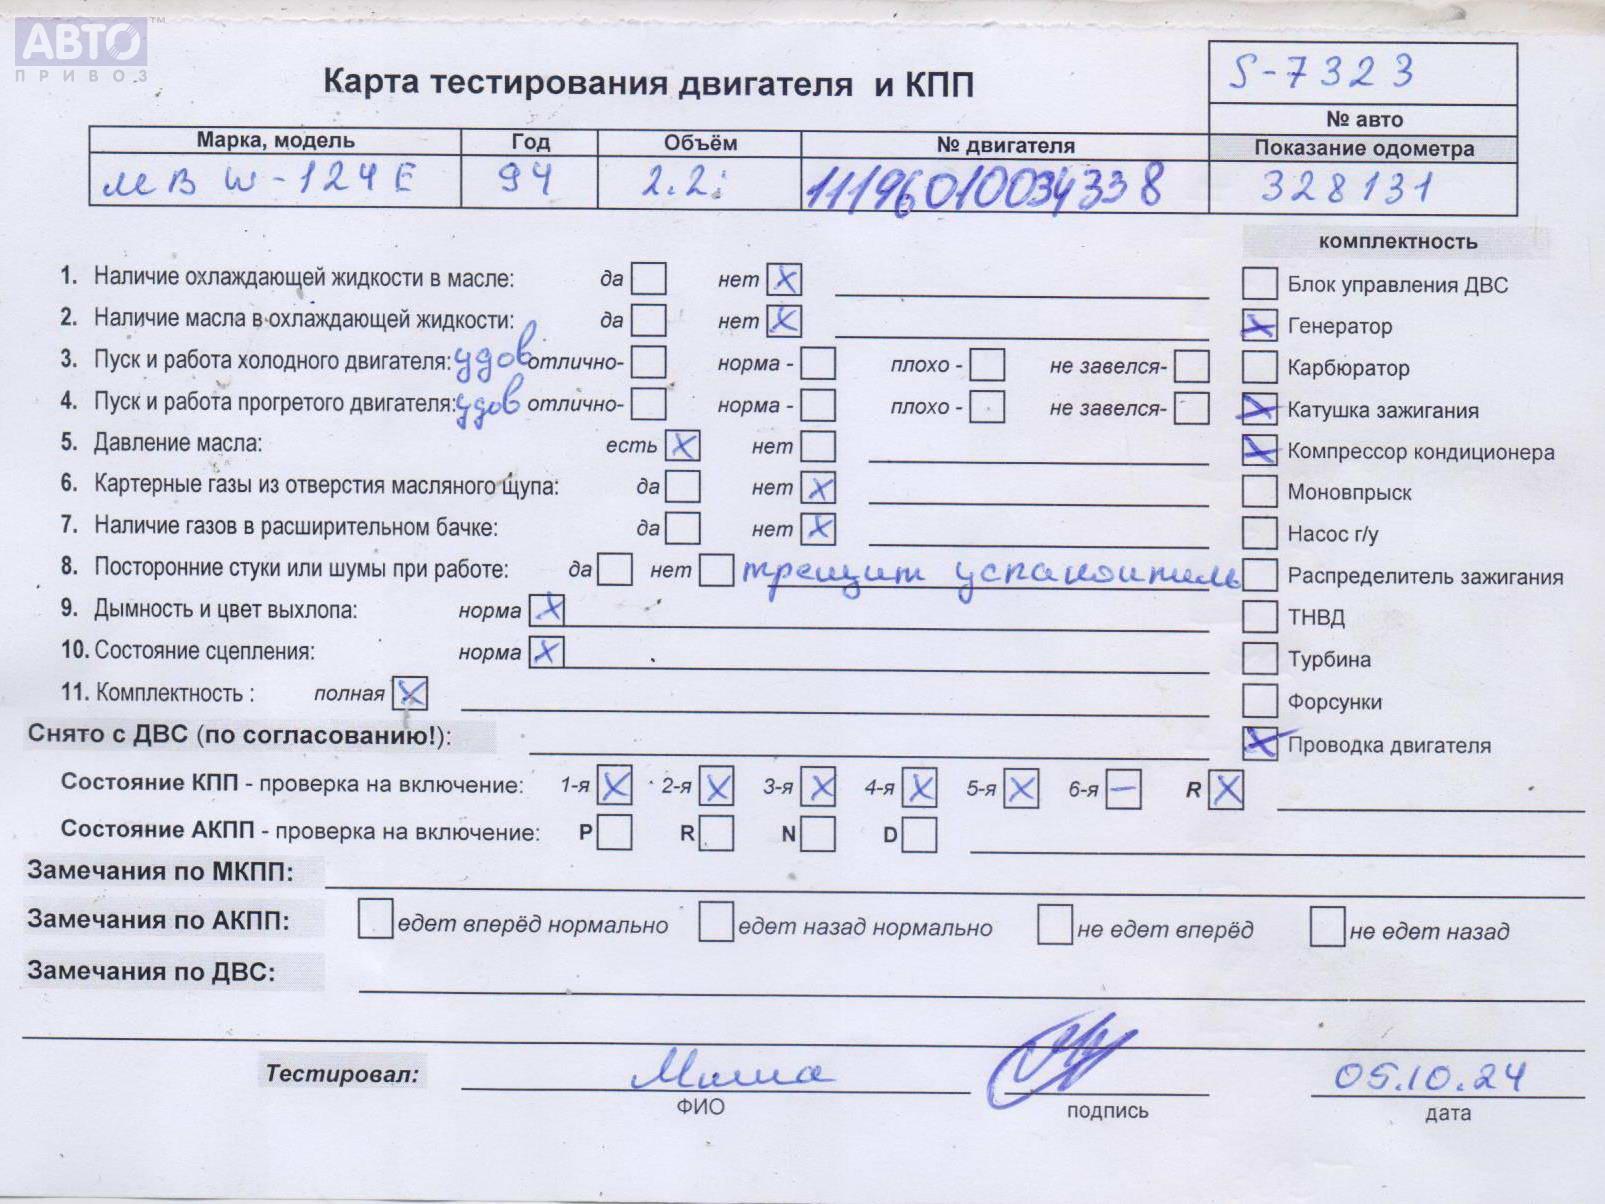 АВТО™
ПРИВОЗ
Карта тестирования двигателя и КПП
S-7323
№ авто
Марка, модель Год Объём № двигателя Показание одометра
МВ W-124E 94 2.2i 11196010034338 328131
комплектность
1. Наличие охлаждающей жидкости в масле: да нет X
Блок управления ДВС
2. Наличие масла в охлаждающей жидкости: да нет X
X Генератор
3. Пуск и работа холодного двигателя: удов отлично- норма - плохо - не завелся-
Карбюратор
4. Пуск и работа прогретого двигателя: удов отлично- норма - плохо - не завелся-
X Катушка зажигания
5. Давление масла: есть X нет
X Компрессор кондиционера
6. Картерные газы из отверстия масляного щупа: да нет X
Моновпрыск
7. Наличие газов в расширительном бачке: да нет X
Насос г/у
8. Посторонние стуки или шумы при работе: да нет трещит успакоитель
Распределитель зажигания
9. Дымность и цвет выхлопа: норма X
ТНВД
10. Состояние сцепления: норма X
Турбина
11. Комплектность : полная X
Форсунки
Снято с ДВС (по согласованию!):
X Проводка двигателя
Состояние КПП - проверка на включение: 1-я X 2-я X 3-я X 4-я X 5-я X 6-я – R X
Состояние АКПП - проверка на включение: P R N D
Замечания по МКПП:
Замечания по АКПП: едет вперёд нормально едет назад нормально не едет вперёд не едет назад
Замечания по ДВС:
Тестировал: Миша 05.10.24
ФИО подпись дата